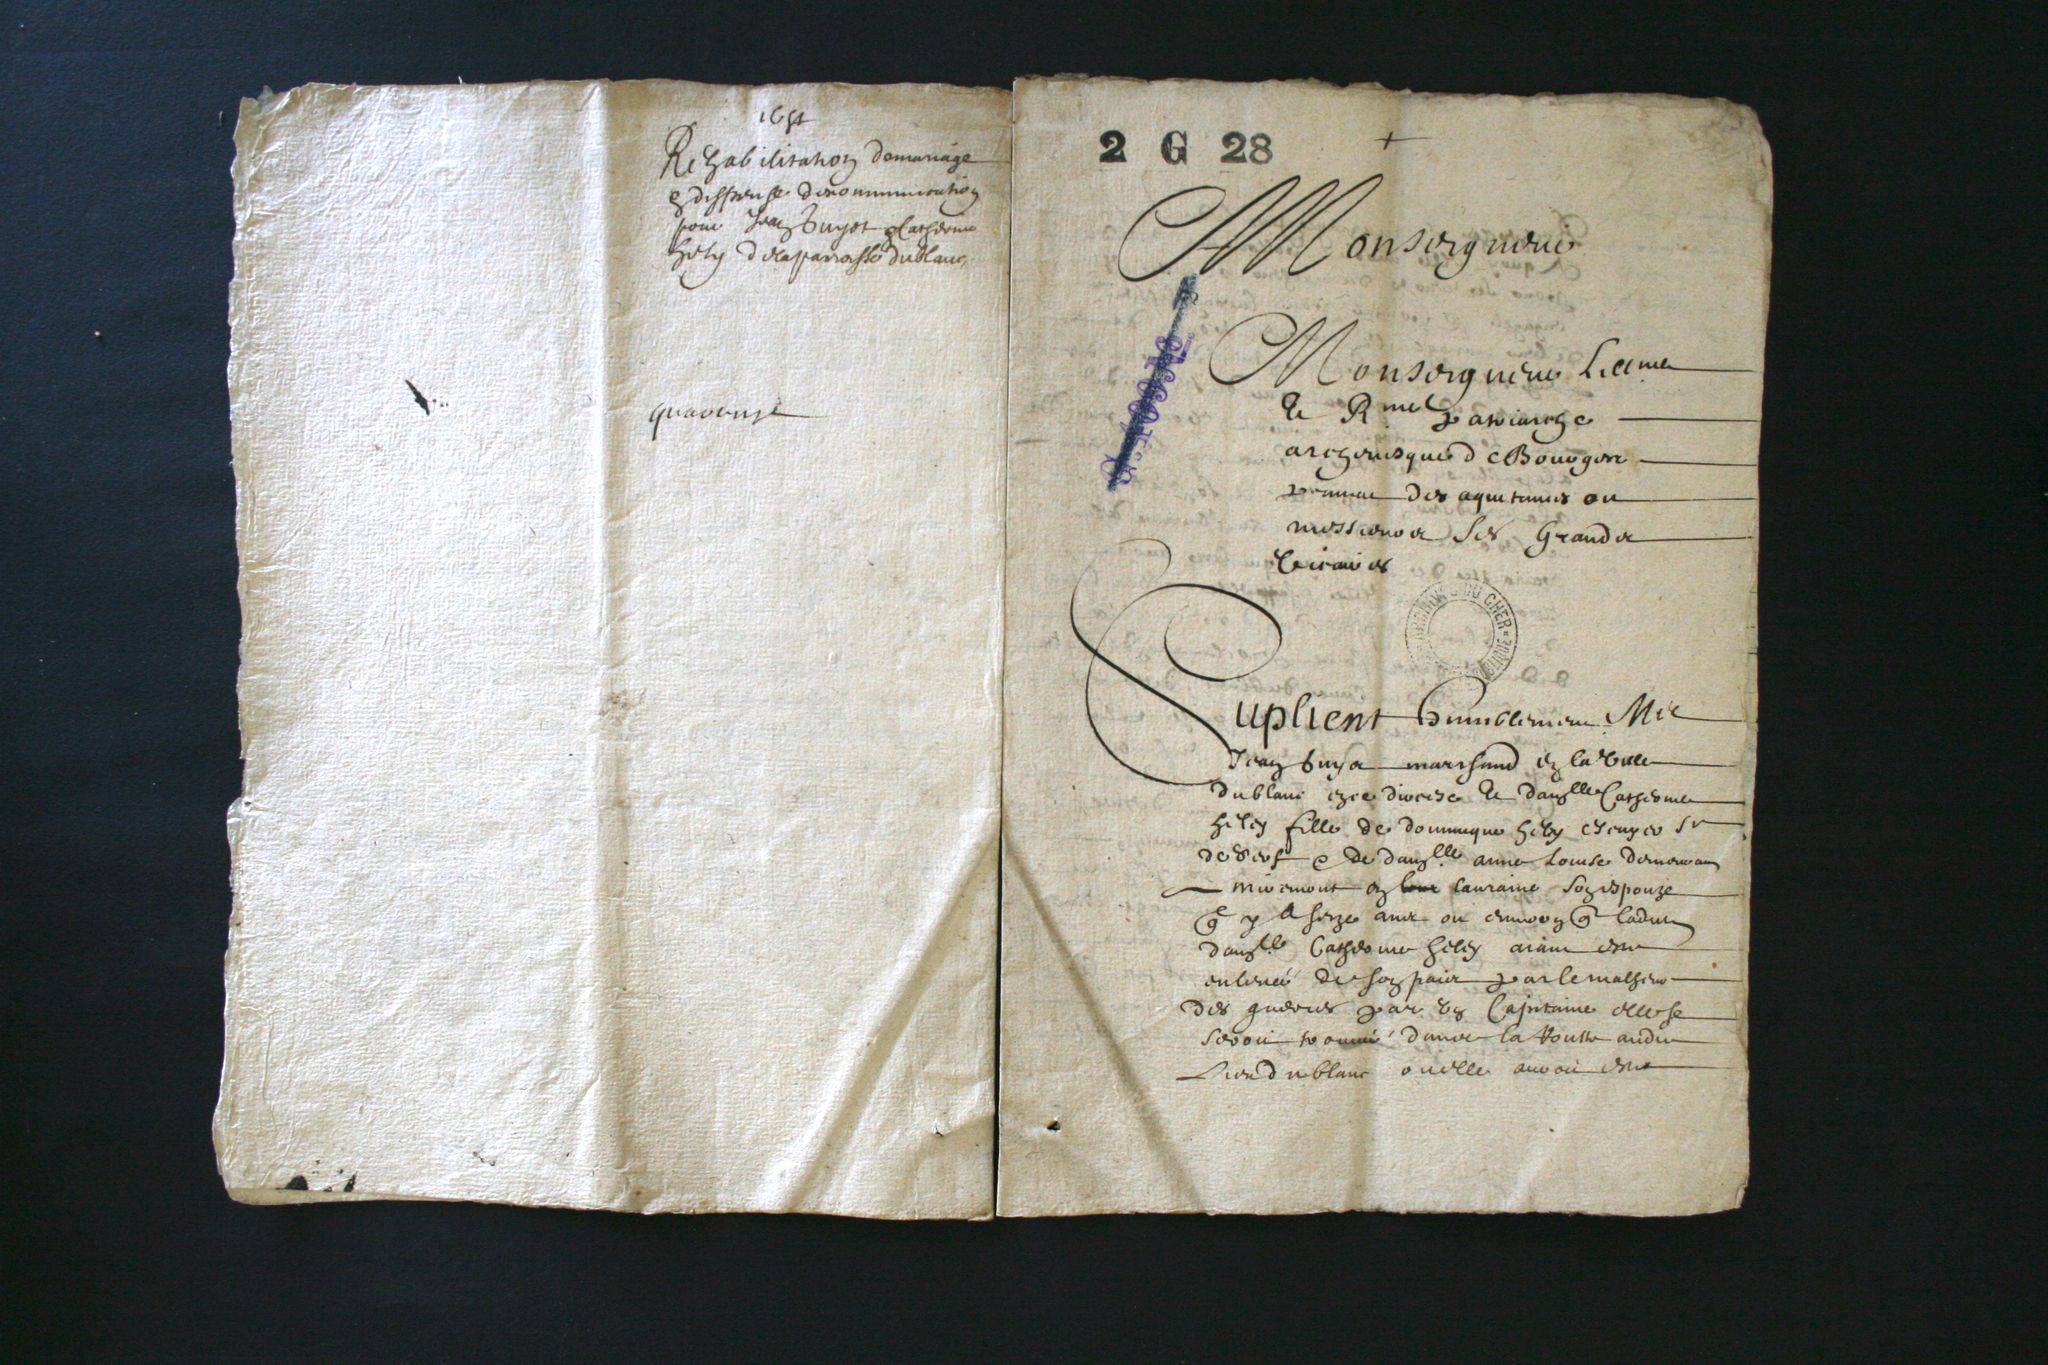 1651
Rehabilitation de mariage
& dispense de communication
pour Jean Buyet & Catherine
hely de la parroisse du blanc
2 G 28
Monseigneur
Monseigneur
et Rme patriarche
archevesque de Bourges
primat des aquitaines ou
messieurs ses Grands
vicaires
ARCHIVES DU CHER
Suplient humblement Me
Jean Buyet marchand en la ville
du blanc diocese et damlle Catherine
hely fille de dominique hely escuyer sr
de & de damlle anne Louise
en lauraine son espouze
qe y a seze ans ou environ que ladite
damlle Catherine hely aiant esté
enlevée de son pais par le malheur
des guerres par un Capitaine elle se
seroit trouvée dans la routte audit
Lieu du blanc ou elle auroit esté